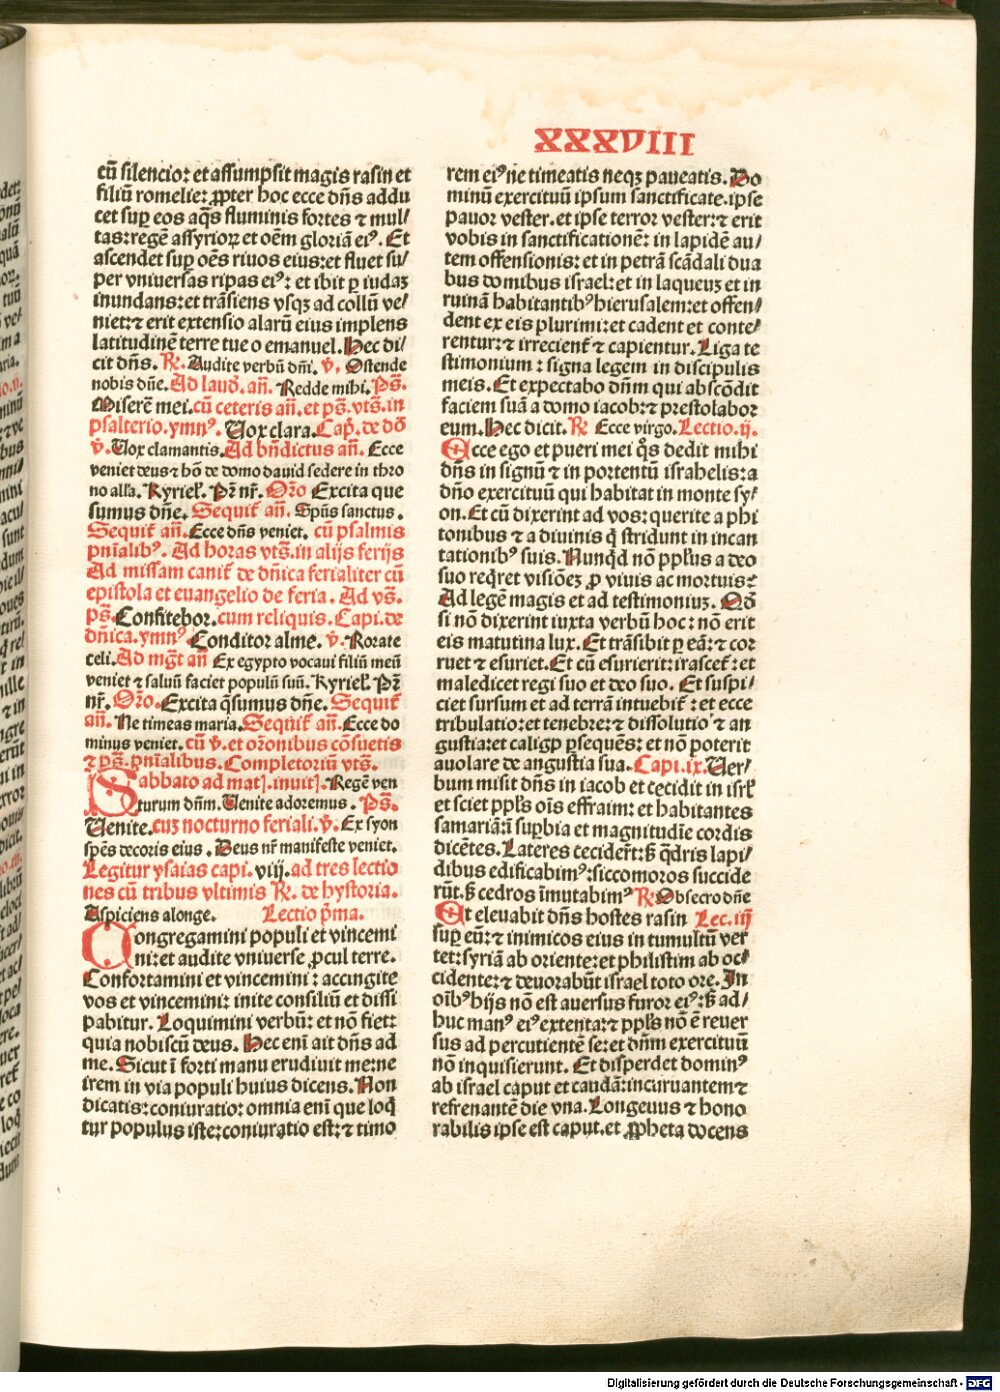 XXXVIII
cū silencio: et assumpsit magis rasin et
filiū romelie: ꝓpter hoc ecce dn̄s addu
cet suꝑ eos aq̄s fluminis fortes ⁊ mul/
tas: regē assyrioꝝ et oēm gloriā eiꝰ. Et
ascendet suꝑ oēs riuos eius: et fluet su/
per vniuersas ripas eiꝰ: et ibit ꝑ iudaꝫ
inundans: et trāsiens vsqꝫ ad collū ve/
niet: ⁊ erit extensio alarū eius implens
latitudinē terre tue o emanuel. Hec di/
cit dn̄s. ℟. Audite verbū dn̄i. ℣. Ostende
nobis dn̄e. Ad laud̄. an̄. Redde mihi. Pꝭ̄.
Miserē mei. cū ceteris an̄. et pꝭ̄. vtꝭ̄. in
psalterio. ymnꝰ. Uox clara. Cap̄. de dō
℣. Uox clamantis. Ad bn̄dictus an̄. Ecce
veniet deus ⁊ hō de domo dauid sedere in thro
no alla. Kyriel̄. Pr̄ nr̄. Or̄o Excita que
sumus dn̄e. Sequit̄ an̄. Spūs sanctus.
Sequit̄ an̄. Ecce dn̄s veniet. cū psalmis
pn̄ialibꝰ. Ad horas vtꝭ̄. in alijs ferijs
Ad missam canit̄ de dn̄ica ferialiter cū
epistola et euangelio de feria. Ad vꝭ̄.
pꝭ̄. Confitebor. cum reliquis. Capi. de
dn̄ica. ymnꝰ Conditor alme. ℣. Rorate
celi. Ad mḡt an̄ Ex egypto vocaui filiū meū
veniet ⁊ saluū faciet populū suū. Kyriel̄. Pr̄
nr̄. Or̄o. Excita q̄sumus dn̄e. Sequit̄
an̄. Ne timeas maria. Sequit̄ an̄. Ecce do
minus veniet. cū ℣. et or̄onibus cōsuetis
⁊ pꝭ̄. pn̄ialibus. Completoriū vtꝭ̄.
Sabbato ad mat̄. inuit̄. Regē ven
turum dn̄m. Uenite adoremus. Pꝭ̄.
Uenite. cuꝫ nocturno feriali. ℣. Ex syon
spēs decoris eius. Deus nr̄ manifeste veniet.
Legitur ysaias capi. viij. ad tres lectio
nes cū tribus vltimis ℟. de hystoria.
Aspiciens alonge. Lectio p̄ma.
Congregamini populi et vincemi
ni: et audite vniuerse ꝓcul terre.
Confortamini et vincemini: accingite
vos et vincemini: inite consiliū et dissi
pabitur. Loquimini verbū: et nō fiet:
quia nobiscū deus. Hec eni ait dn̄s ad
me. Sicut ī forti manu erudiuit me: ne
irem in via populi huius dicens. Non
dicatis: coniuratio: omnia enī que loq̄
tur populus iste: coniuratio est: ⁊ timo
rem eiꝰ ne timeatis neqꝫ paueatis. Do
minū exercituū ipsum sanctificate. ipse
pauor vester. et ipse terror vester: ⁊ erit
vobis in sanctificationē: in lapidē au/
tem offensionis: et in petrā scādali dua
bus domibus israel: et in laqueuꝫ et in
ruinā habitantibꝰ hierusalem: et offen/
dent ex eis plurimi: et cadent et conte/
rentur: ⁊ irrecient̄ ⁊ capientur. Liga te
stimonium: signa legem in discipulis
meis. Et expectabo dn̄m qui abscōdit
faciem suā a domo iacob: ⁊ prestolabor
eum. Hec dicit. ℟ Ecce virgo. Lectio. ij.
Ecce ego et pueri mei qͦs dedit mihi
dn̄s in signū ⁊ in portentū israhelis: a
dn̄o exercituū qui habitat in monte sy/
on. Et cū dixerint ad vos: querite a phi
tonibus ⁊ a diuinis q̄ stridunt in incan
tationibꝰ suis. Nunqd̄ nō pp̄lus a deo
suo reqͥret visiōeꝫ ꝓ viuis ac mortuis:
Ad legē magis et ad testimoniuꝫ. Qd̄
si nō dixerint iuxta verbū hoc: nō erit
eis matutina lux. Et trāsibit ꝑ eā: ⁊ cor
ruet ⁊ esuriet. Et cū esurierit: irascet̄: et
maledicet regi suo et deo suo. Et suspi/
ciet sursum et ad terrā intuebit̄: et ecce
tribulatio: et tenebre: ⁊ dissolutio ⁊ an
gustia: et caligo ꝑsequēs: et nō poterit
auolare de angustia sua. Capi. ix. Uer/
bum misit dn̄s in iacob et cecidit in isrl̄
et sciet pp̄ls oīs effraim: et habitantes
samariā: ī suꝑbia et magnitudīe cordis
dicētes. Lateres ceciderūt: sꝫ qͣdris lapi/
dibus edificabimꝰ: siccomoros succide
rūt. sꝫ cedros īmutabimꝰ ℟ Obsecro dn̄e
Et eleuabit dn̄s hostes rasin Lec. iij
suꝑ eū: ⁊ inimicos eius in tumultū ver
tet: syriā ab oriente: et philistim ab oc/
cidente: ⁊ deuorabūt israel toto ore. In
oībꝰ hijs nō est auersus furor eiꝰ: sꝫ ad/
huc manꝰ eiꝰ extenta: ⁊ pp̄ls nō ē reuer
sus ad percutientē se: et dn̄m exercituū
nō inquisierunt. Et disperdet dominꝰ
ab israel caput et caudā: incuruantem ⁊
refrenantē die vna. Longeuus ⁊ hono
rabilis ipse est caput. et ꝓpheta docens
Digitalisierung gefördert durch die Deutsche Forschungsgemeinschaft - DFG